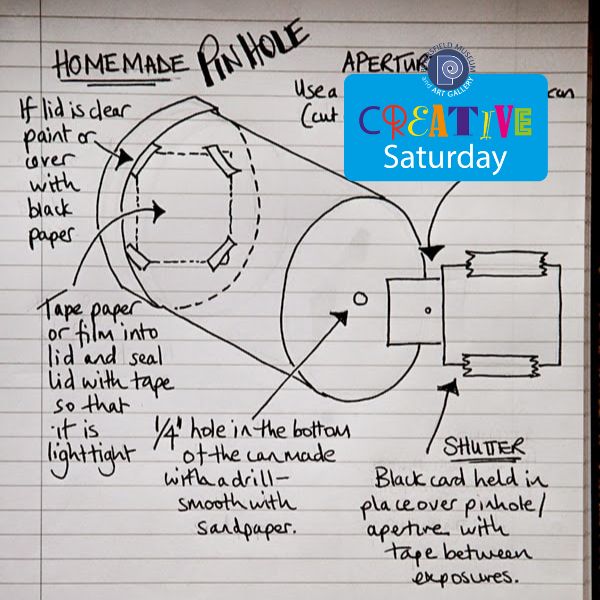 HOMEMADE PINHOLE
If lid is clear
paint or
cover
with
black
paper
Use a can
(cut
AND ART GALLERY
CREATIVE
Saturday
Tape paper
or film into
lid and seal
lid with tape
so that
it is
lighttight
1/4" hole in the bottom
of the can made
with a drill -
smooth with
sandpaper.
SHUTTER
Black card held in
place over pinhole/
aperture with
tape between
exposures.